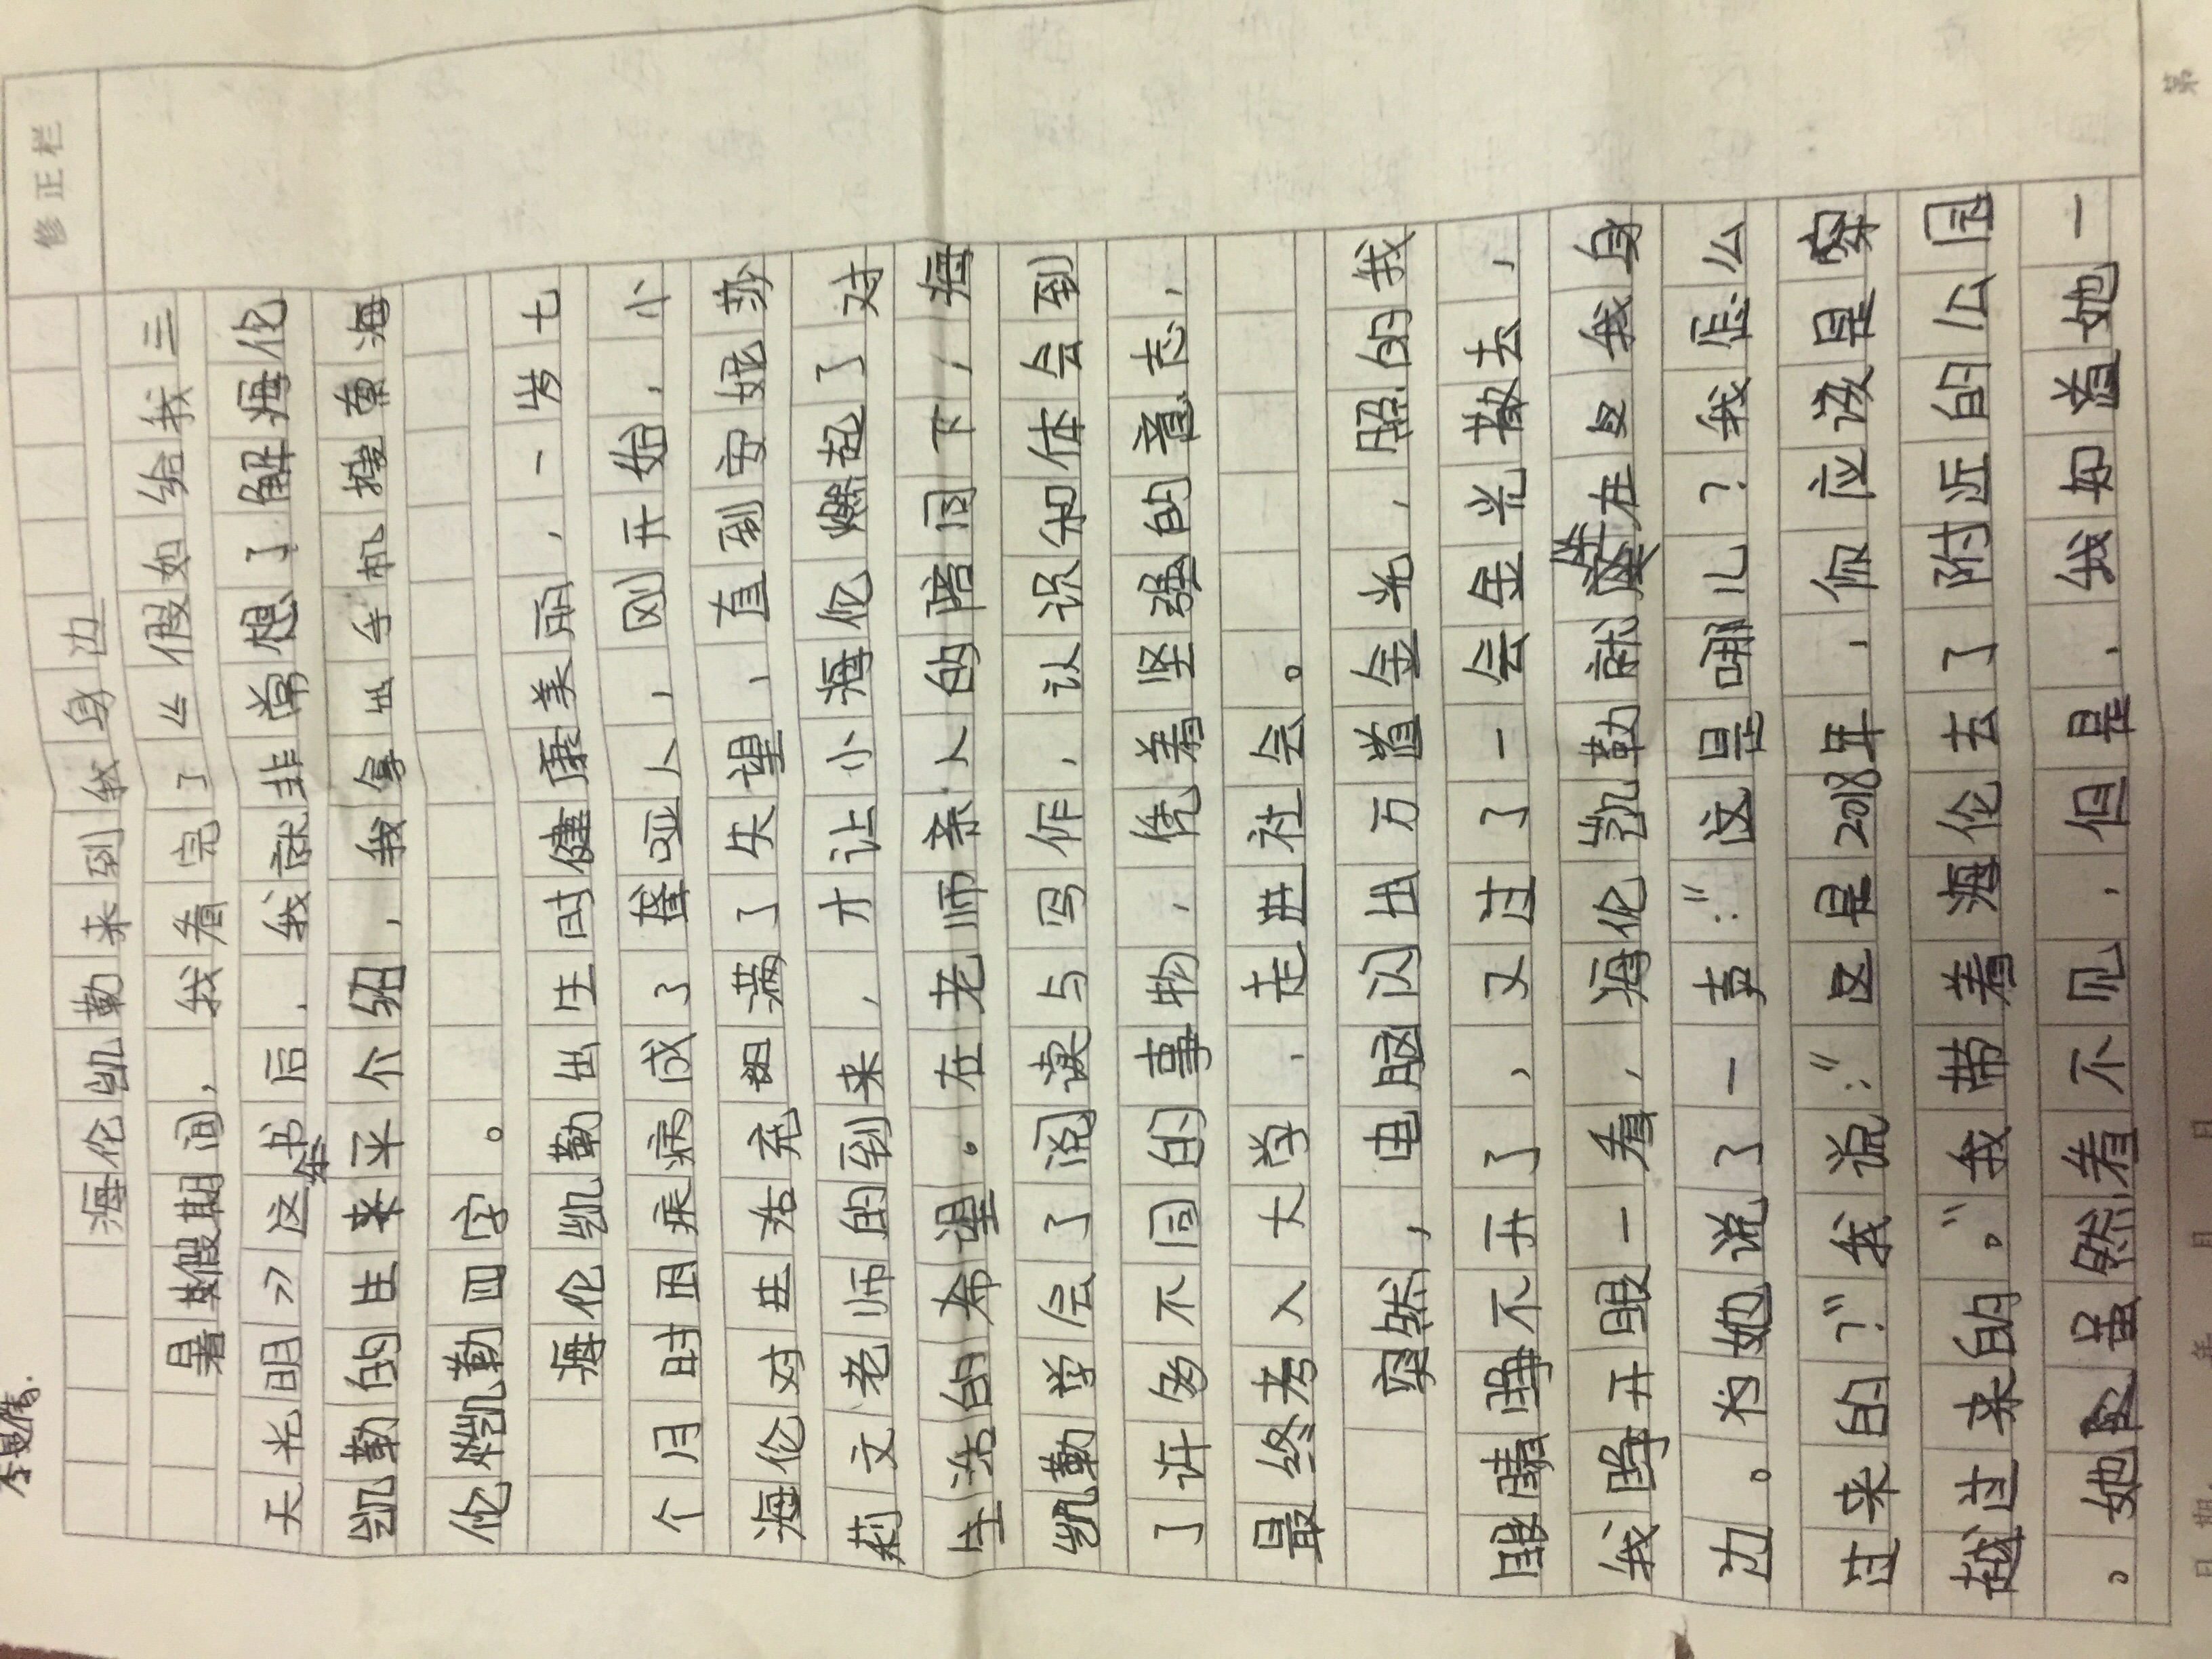 李曼倩.
修正栏
海伦凯勒来到我身边
暑假期间，我看完了《假如给我三
天光明》这本书后，我就非常想了解海伦
凯勒的生来平个绍，我拿出手机搜索海
伦凯勒四字。
海伦凯勒出生时健康美丽，一岁七
个月时因疾病成了聋哑人，刚开始，小
海伦对生活充满了失望，直到安妮莎
莉文老师的到来，才让小海伦燃起了对
生活的希望。在老师亲人的陪同下，海
凯勒学会了阅读与写作，认识和体会到
了许多不同的事物，凭着坚强的意志，
最终考入大学，走进社会。
突然，电脑闪出万道金光，照的我
眼睛睁不开了，又过了一会金光散去，
我睁开眼一看，海伦凯勒就坐在我身
边。她说了一声："这是哪儿？我怎么
过来的？"我说："这是2018年，你应该是穿
越过来的。"我带着海伦去了附近的公园
。她虽然看不见，但是，我知道她一
第
日期: 年 月 日